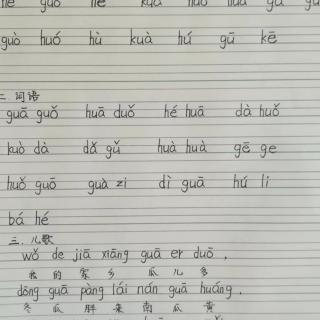 guò huó hù kuà hú gū kē
二.词语
guā guǒ huā duǒ hé huā dà huǒ
kuò dà dǎ gǔ huà huà gē ge
huǒ guō guà zi dì guā hú li
bá hé
三.儿歌
wǒ de jiā xiāng guā er duō,
我 的 家 乡 瓜 儿 多
dōng guā pàng lái nán guā huáng.
冬 瓜 胖 来 南 瓜 黄